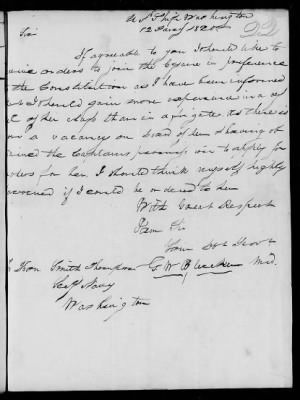 22
U S Ship Washington
12 Jany 1820
Sir
If agreeable to you I should like to
orders to join the Cyane in preference
the Constitution as I have been informed
I should gain more experience in a
of her class than in a frigate. As there is
a vacancy on board of her & having
the Captains permission to apply for
orders for her I should think myself highly
if I could be ordered to her
With Great Respect
I am Sir
Your Obt Servt
Hon Smith Thompson G W Mid.
Secy Navy
Washington